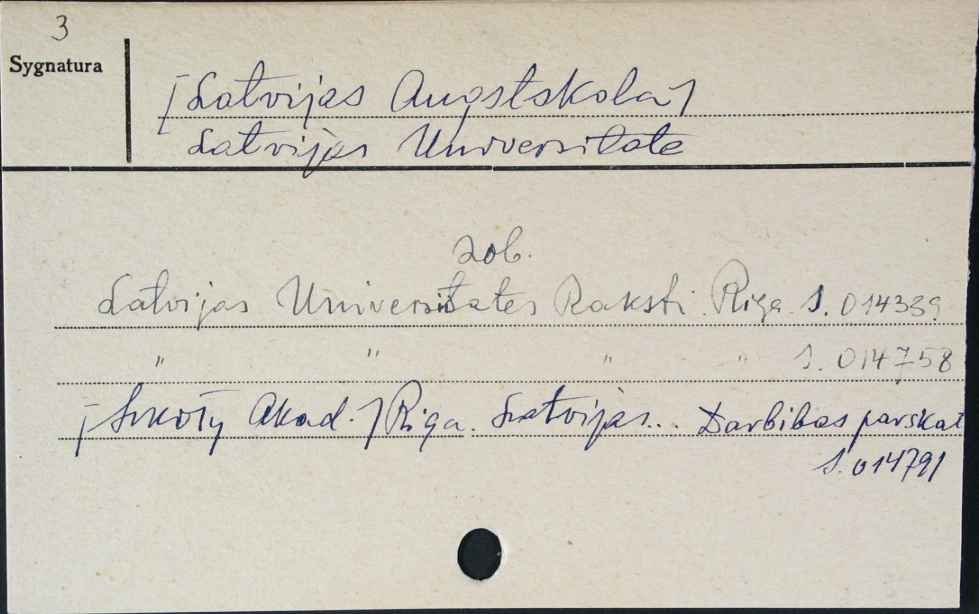 3
Sygnatura
[Latvijas Augstskola]
Latvijas Universitate
zob.
Latvijas Universitates Raksti. Riga S. 014339
" " " " S. 014758
[Szkoły Akad.] Riga. Latvijas... Darbibas parskat
S. 014791